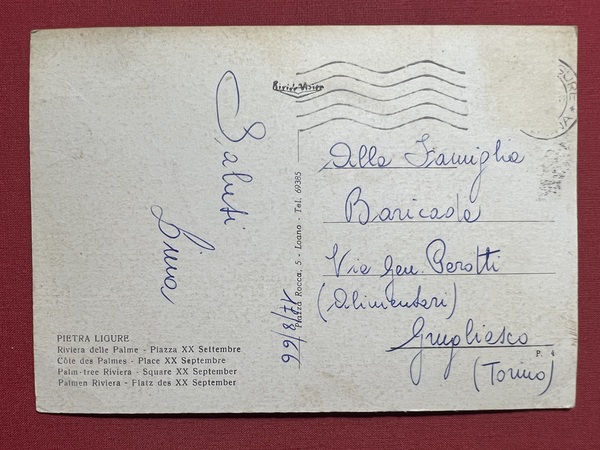 Saluti
Lina
17/8/66
Piazza Rocca, 5 - Loano - Tel. 69385
Alla Famiglia
Baricada
Via Gen. Perotti
(Alimentari)
Grugliasco
(Torino)
P. 4
PIETRA LIGURE
Riviera delle Palme - Piazza XX Settembre
Côte des Palmes - Place XX Septembre
Palm-tree Riviera - Square XX September
Palmen Riviera - Flatz des XX September